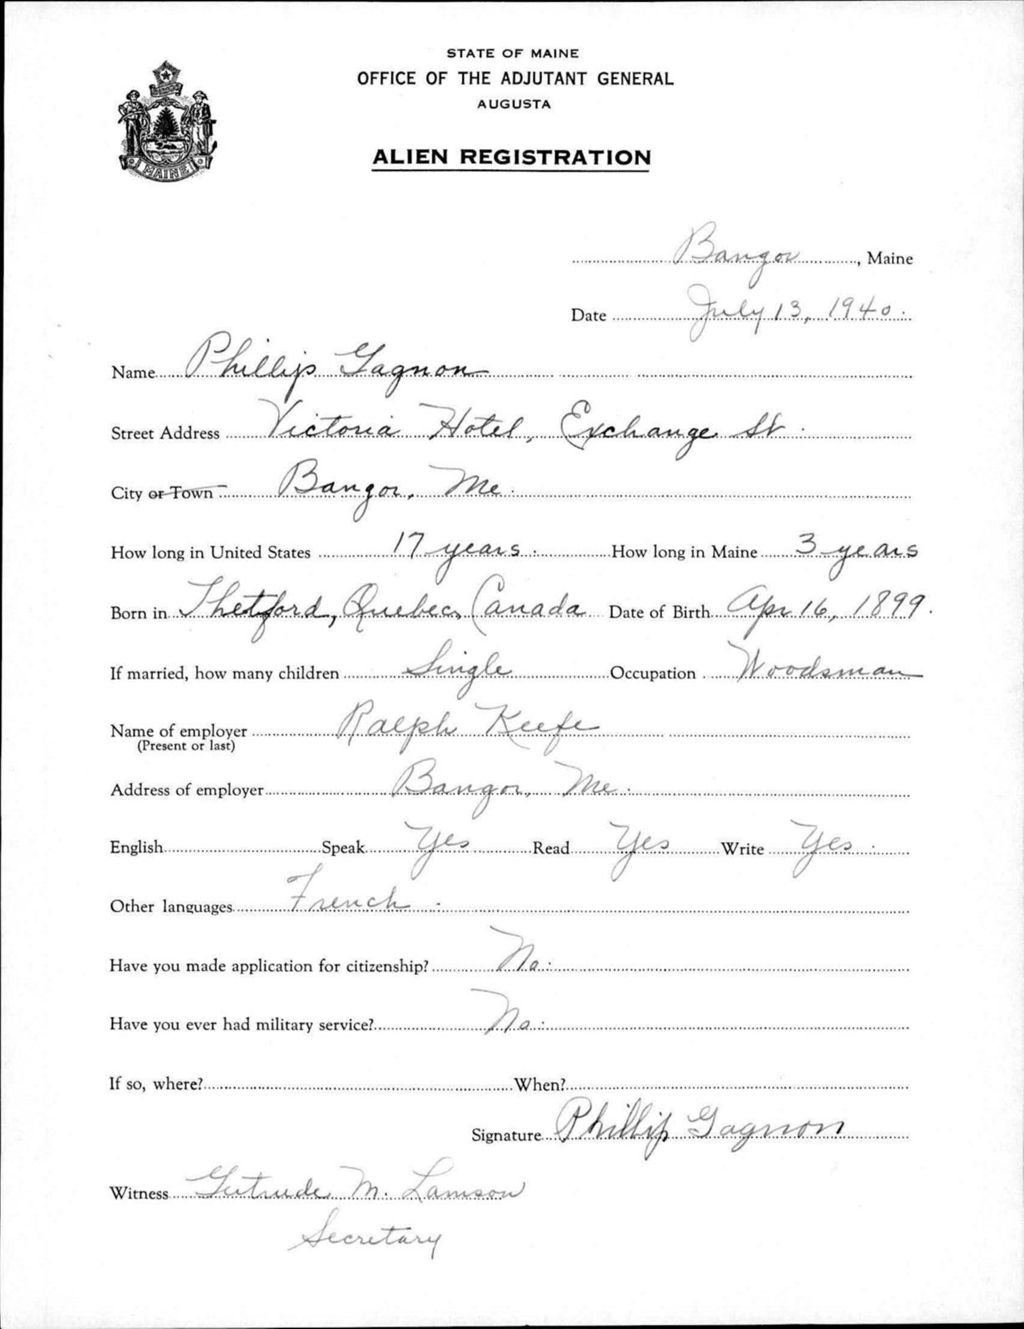 STATE OF MAINE
OFFICE OF THE ADJUTANT GENERAL
AUGUSTA
ALIEN REGISTRATION
MAINE
Bangor, Maine
Date July 13, 1940.
Name Phillip Gagnon
Street Address Victoria Hotel, Exchange St.
City or Town Bangor, Me.
How long in United States 17 years. How long in Maine 3 years
Born in Thetford, Quebec, Canada Date of Birth Apr 16, 1899.
If married, how many children Single Occupation Woodsman
Name of employer Ralph Keefe
(Present or last)
Address of employer Bangor, Me.
English Speak Yes Read Yes Write Yes.
Other languages French.
Have you made application for citizenship? No.
Have you ever had military service? No.
If so, where? When?
Signature Phillip Gagnon
Witness Gertrude M. Lamson
Secretary